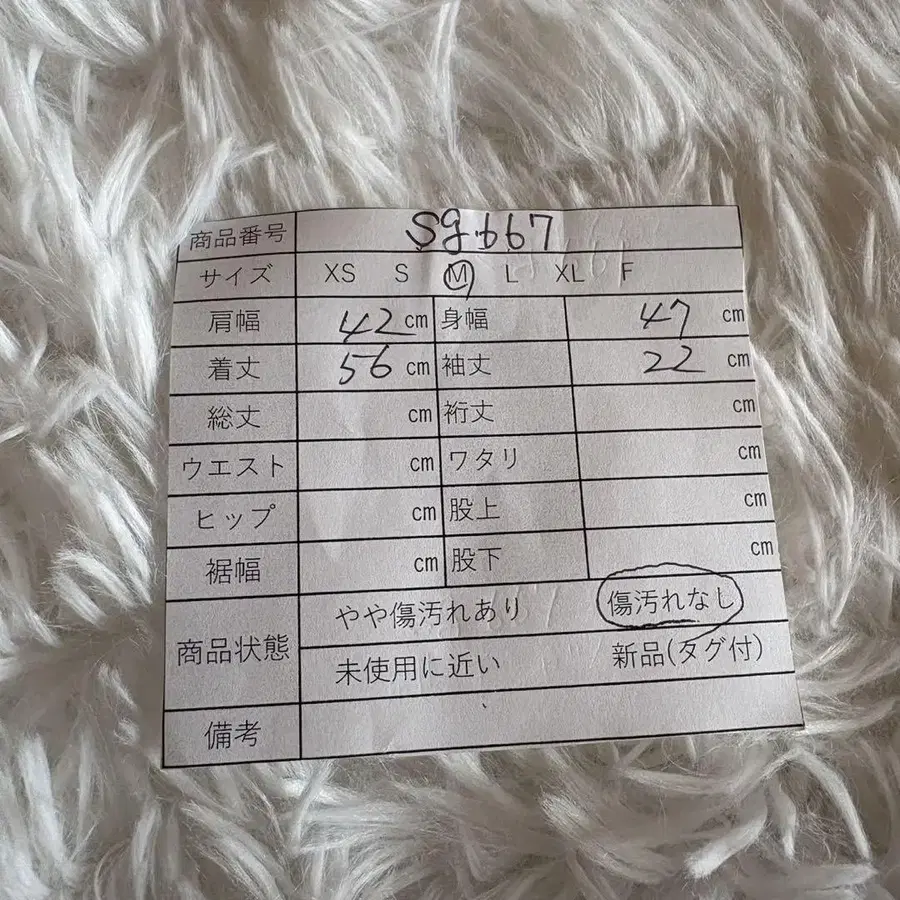 商品番号 Sg.667
サイズ XS S M L XL F
肩幅 42 cm 身幅 47 cm
着丈 56 cm 袖丈 22 cm
総丈 cm 裄丈 cm
ウエスト cm ワタリ cm
ヒップ cm 股上 cm
裾幅 cm 股下 cm
やや傷汚れあり 傷汚れなし
商品状態
未使用に近い 新品(タグ付)
備考